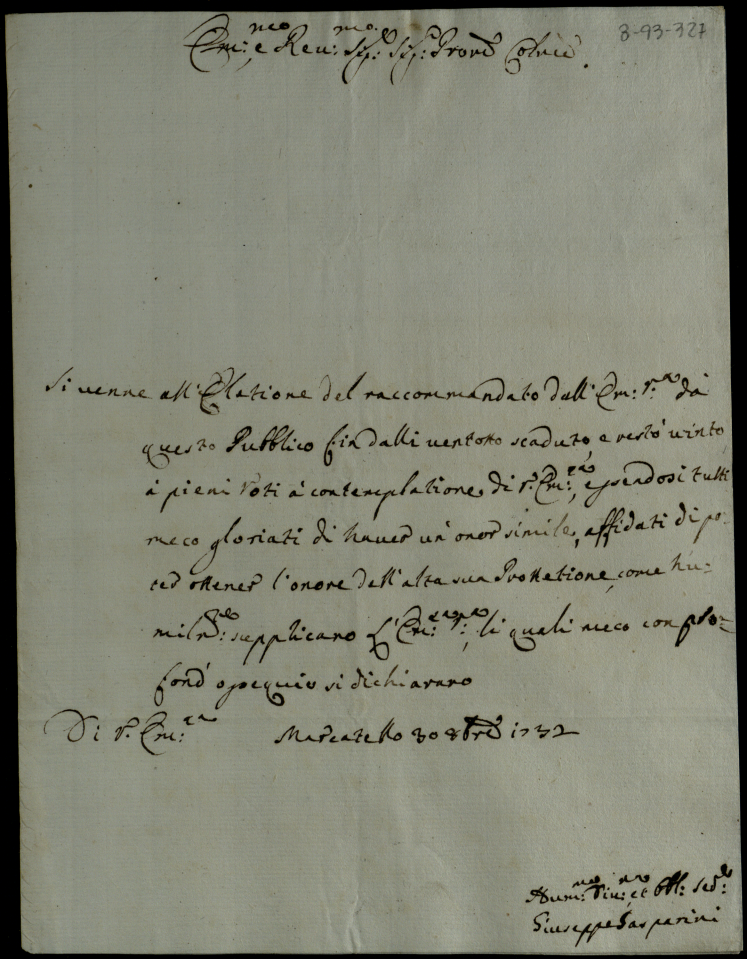 8-93-327
Em:neo e Reu:mo Sig: Sig: Prone Colmo
Si uenne all'Elatione del raccommandato dall'Em: V.ra da
questo Pubblico fin dalli uentotto scaduto, e restò uinto
à pieni Voti à contemplatione di V. Em:za, essendosi tutti
meco gloriati di hauer un'onor simile, affidati di po-
ter ottener l'onore dell'alta sua Protettione, come hu-
milm:te supplicano l'Em:za V.ra, li quali meco con pro-
fond' ossequio si dichiarano
Di V. Em:za Mercatello 30 8bre 1732
Hum:mo Diu:mo et Obl: Ser:
Giuseppe Gasparini